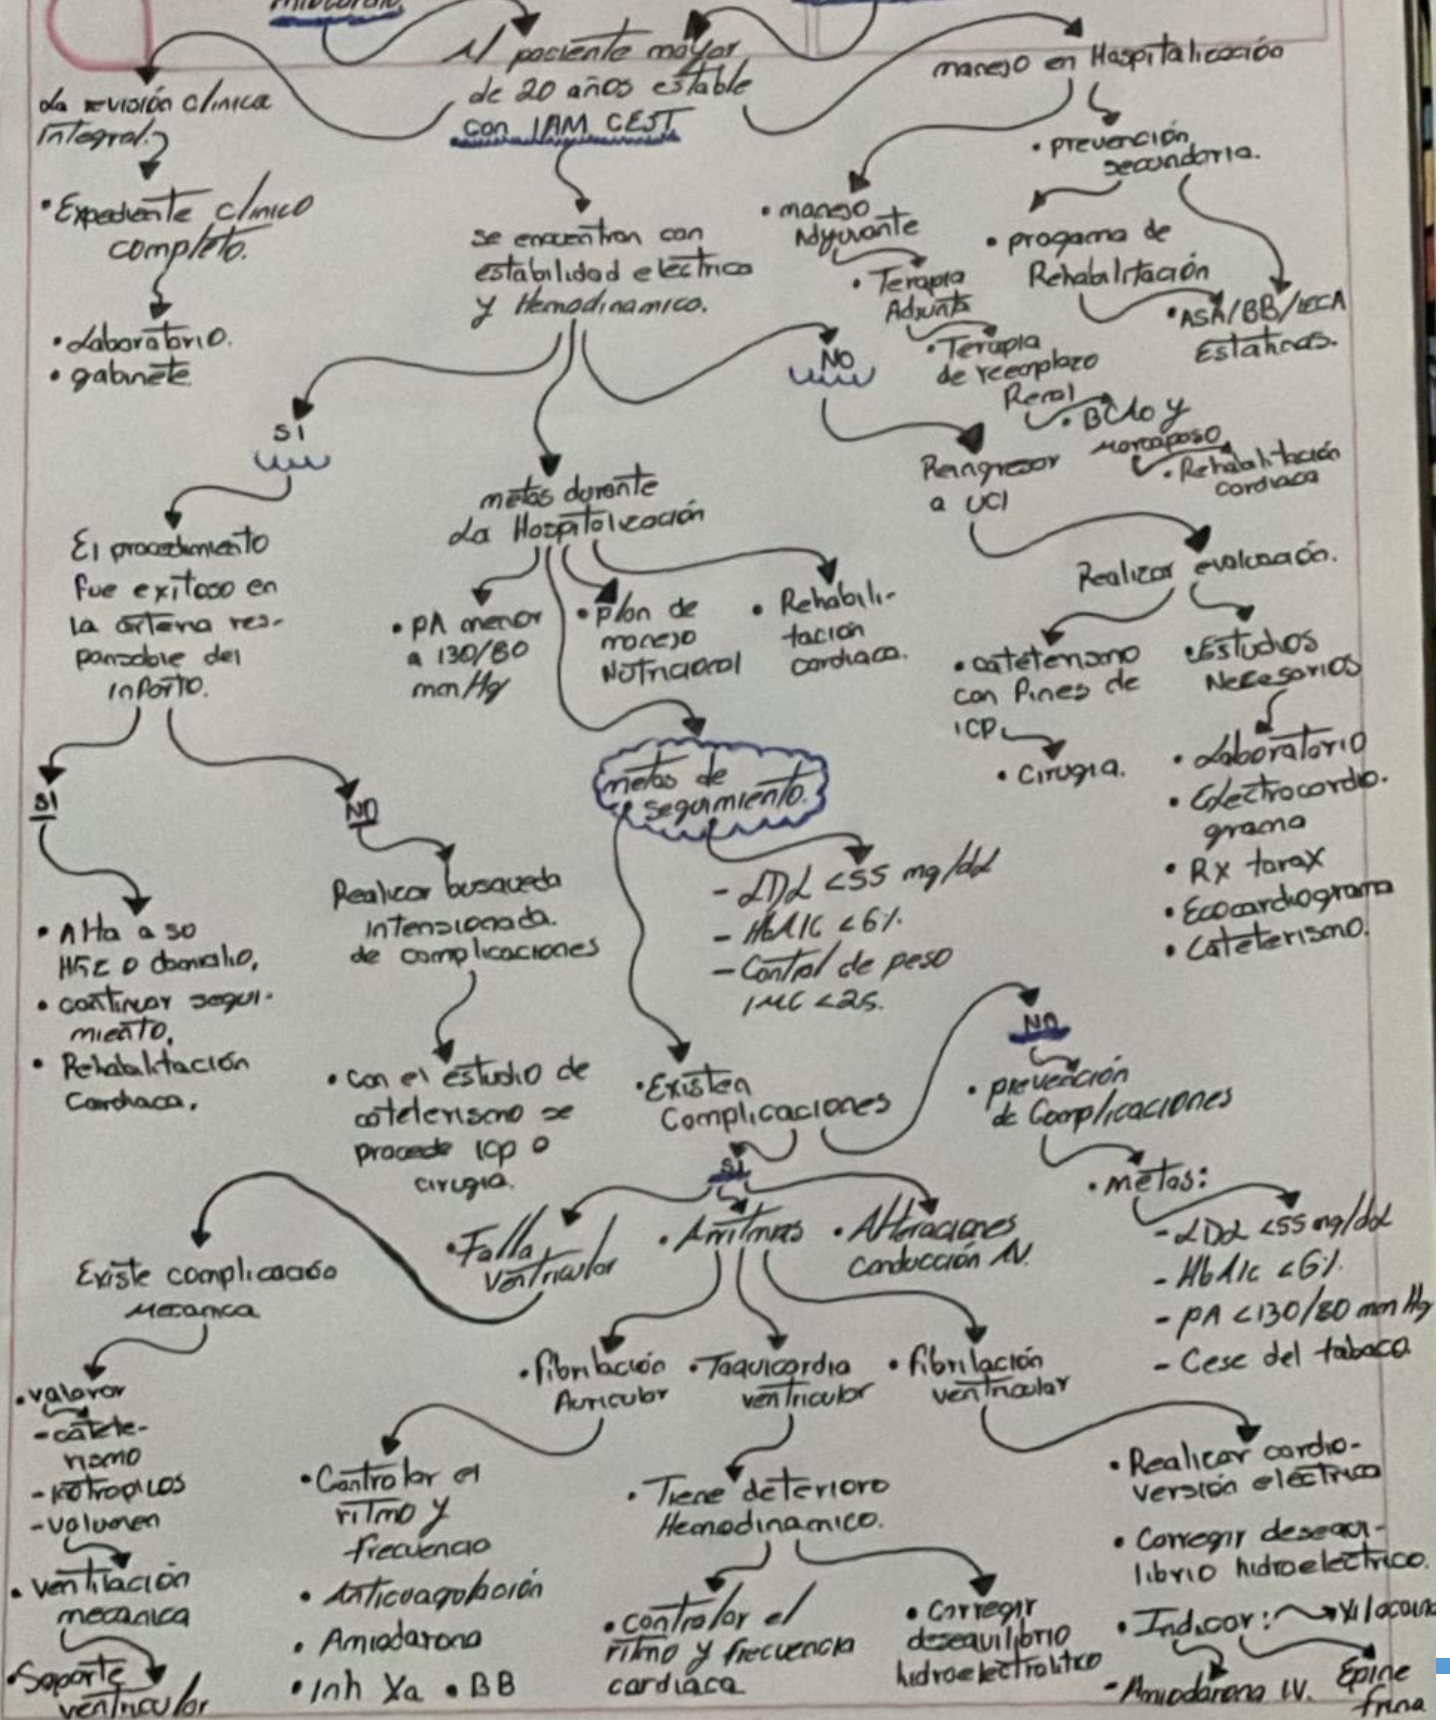 Al paciente mayor
de 20 años estable
con IAM CEST
La revisión clínica
Integral.
• Expediente clínico
completo.
• Laboratorio.
• gabinete
se encuentran con
estabilidad eléctrica
y Hemodinamico.
manejo en Hospitalización
• prevención
secundaria.
• manejo
Adyuvante
• Terapia
Adjunta
• Terapia
de reemplazo
Renal
• BCIAo y
marcapaso
• Rehabilitación
cardiaca
• progama de
Rehabilitación
• ASA/BB/IECA
Estatinas.
SI
NO
Reingresar
a UCI
Realizar evaluación.
• cateterismo
con fines de
ICP
• cirugia.
• Estudios
Necesarios
• Laboratorio
• Electrocardio-
grama
• Rx torax
• Ecocardiograma
• Cateterismo.
metas durante
La Hospitalización
• PA menor
a 130/80
mm/Hg
• plan de
manejo
Nutricional
• Rehabili-
tación
cardiaca.
El procedimiento
fue exitoso en
la arteria res-
ponsable del
infarto.
SI
NO
• Alta a so
domicilio,
• continuar segui-
miento,
• Rehabilitación
Cardiaca.
Realizar busqueda
intensionada
de complicaciones
• con el estudio de
cateterismo se
procede ICP o
cirugia.
metas de
seguimiento.
- LDL <55 mg/dL
- HbA1c <6%
- Control de peso
IMC <25.
• Existen
Complicaciones
NO
• prevención
de Complicaciones
• metas:
- LDL <55 mg/dL
- HbA1c <6%
- PA <130/80 mm Hg
- Cese del tabaco
SI
• Falla
ventricular
• Arritmias
• Alteraciones
conducción AV.
Existe complicación
Mecanica
• valorar
- catete-
rismo
- inotropicos
- volumen
• ventilación
mecanica
• Soporte
ventricular
• fibrilación
Auricular
• Taquicardia
ventricular
• fibrilación
ventricular
• Controlar el
ritmo y
frecuencia
• Anticoagulación
• Amiodarona
• Inh Xa • BB
• Tiene deterioro
Hemodinamico.
• controlar el
ritmo y frecuencia
cardiaca
• Corregir
desequilibrio
hidroelectrolitico
• Realizar cardio-
versión eléctrica
• Corregir desequi-
librio hidroelectrico.
• Indicar: Xilocaina
- Amiodarona I.V.
Epine
frina